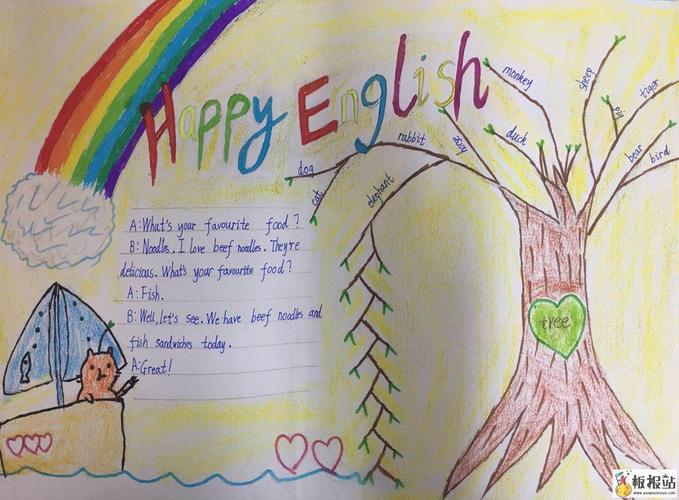 Happy English
A: What's your favourite food?
B: Noodles. I love beef noodles. They're
delicious. What's your favourite food?
A: Fish.
B: Well, let's see. We have beef noodles and
fish sandwiches today.
A: Great!
dog
cat
rabbit
elephant
monkey
duck
sheep
pig
tiger
bear
bird
tree
板报站
WWW.BANBAOZHAN.COM